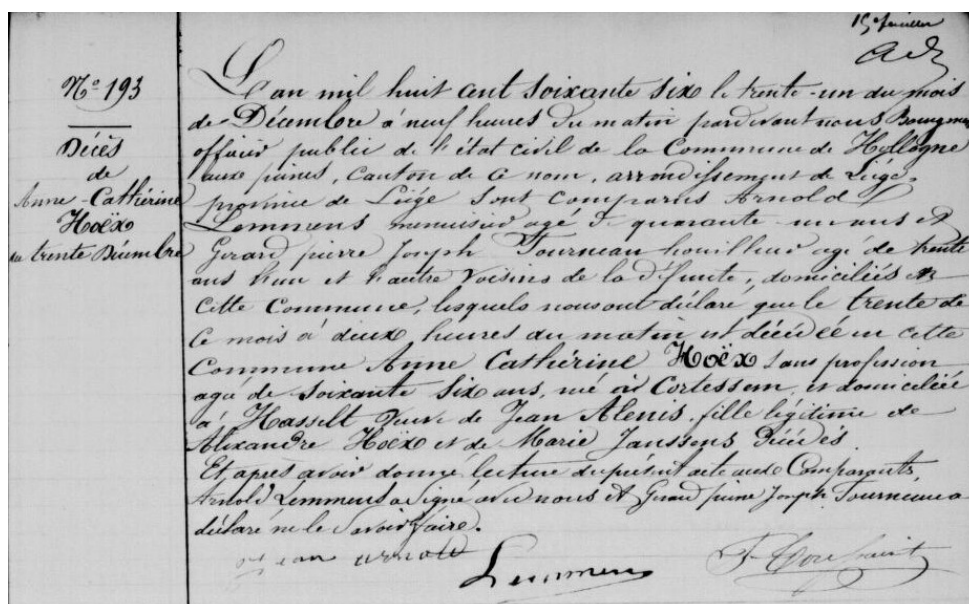 N° 193
Décès
de
Anne-Cathérine
Hoëx
du trente Décembre
L'an mil huit cent soixante six le trente-un du mois
de Décembre à neuf heures du matin pardevant nous Bourgmestre
officier public de l'état civil de la Commune de Hollogne
aux pierres, Canton de ce nom, arrondissement de Liége,
province de Liége sont comparus Arnold
Lemmens menuisier agé de quarante-un ans et
Gerard pierre Joseph Tourneau houilleur agé de trente
ans l'un et l'autre voisins de la défunte, domiciliés en
cette Commune, lesquels nous ont déclaré que le trente de
ce mois à deux heures du matin est décédée en cette
Commune Anne Cathérine Hoëx sans profession
agée de soixante six ans, née à Cortessem, et domiciliée
à Hasselt veuve de Jean Alenis, fille légitime de
Alexandre Hoëx et de Marie Janssens décédés.
Et après avoir donné lecture du présent acte aux Comparants,
Arnold Lemmens a signé avec nous et Gerard pierre Joseph Tourneau a
déclaré ne le savoir faire.
jean arnold
Lemmens